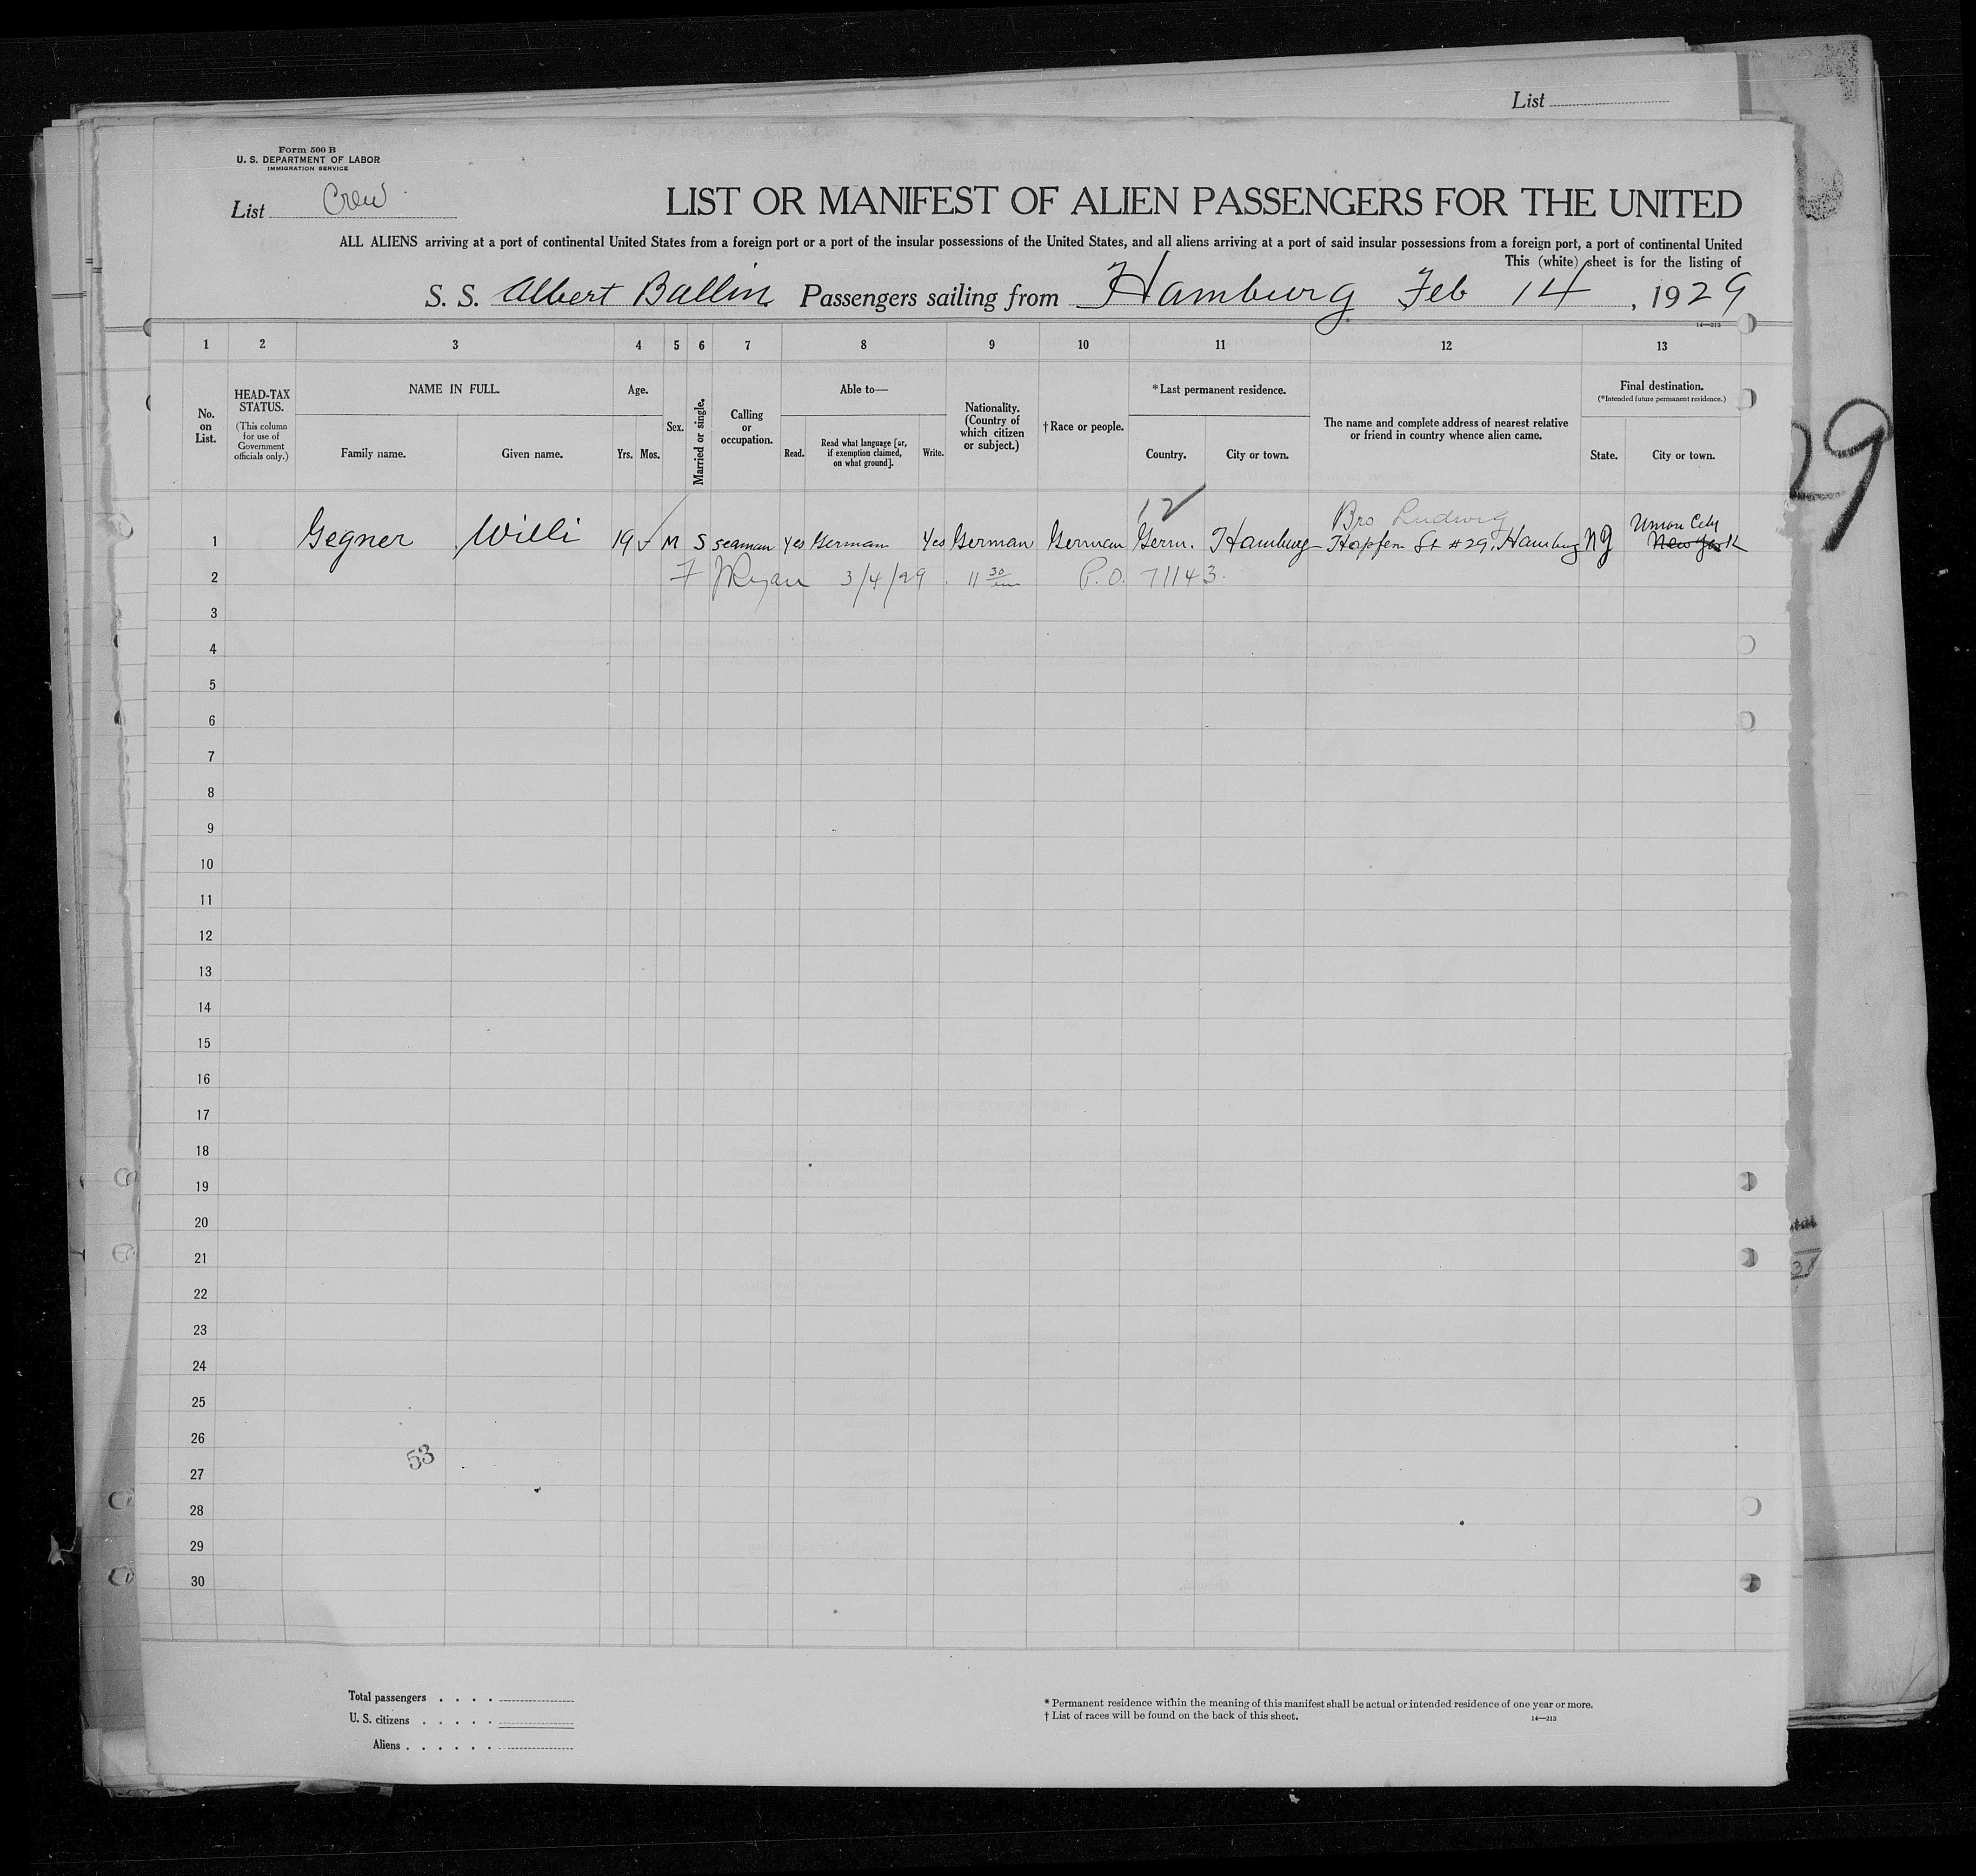 List
Form 500 B
U. S. DEPARTMENT OF LABOR
IMMIGRATION SERVICE
List Crew
LIST OR MANIFEST OF ALIEN PASSENGERS FOR THE UNITED
ALL ALIENS arriving at a port of continental United States from a foreign port or a port of the insular possessions of the United States, and all aliens arriving at a port of said insular possessions from a foreign port, a port of continental United
This (white) sheet is for the listing of
S. S. Albert Ballin Passengers sailing from Hamburg Feb 14, 1929
14—213
1 2 3 4 5 6 7 8 9 10 11 12 13
No. on List.
HEAD-TAX STATUS.
(This column for use of Government officials only.)
NAME IN FULL.
Family name. Given name.
Age.
Yrs. Mos.
Sex.
Married or single.
Calling or occupation.
Able to—
Read. Read what language [or, if exemption claimed, on what ground]. Write.
Nationality. (Country of which citizen or subject.)
† Race or people.
* Last permanent residence.
Country. City or town.
The name and complete address of nearest relative or friend in country whence alien came.
Final destination.
(*Intended future permanent residence.)
State. City or town.
29
12
Bro Ludwig
Union City
1 Gegner Willi 19 M S seaman Yes German Yes German German Germ. Hamburg Hopfen St #29, Hamburg NJ New York
2 F J Ryan 3/4/29 11 30 P. O. 71143.
3
4
5
6
7
8
9
10
11
12
13
14
15
16
17
18
19
20
21
22
23
24
25
26
53
27
28
29
30
Total passengers . . . .
U. S. citizens . . . . .
Aliens . . . . . .
* Permanent residence within the meaning of this manifest shall be actual or intended residence of one year or more.
† List of races will be found on the back of this sheet.
14—213